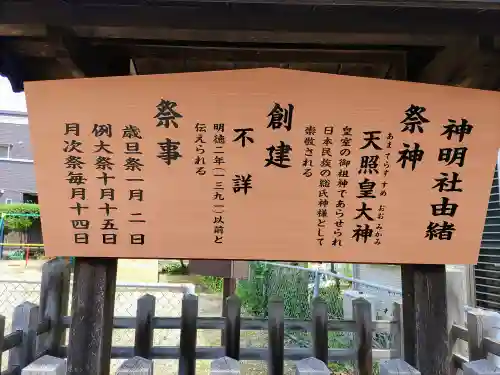 神明社由緒
祭神
天照皇大神
あま てらす すめ おお みかみ
皇室の御祖神であらせられ
日本民族の総氏神様として
崇敬される
創建
不詳
明徳二年(一三九一)以前と
伝えられる
祭事
歳旦祭一月二日
例大祭十月十五日
月次祭毎月十四日